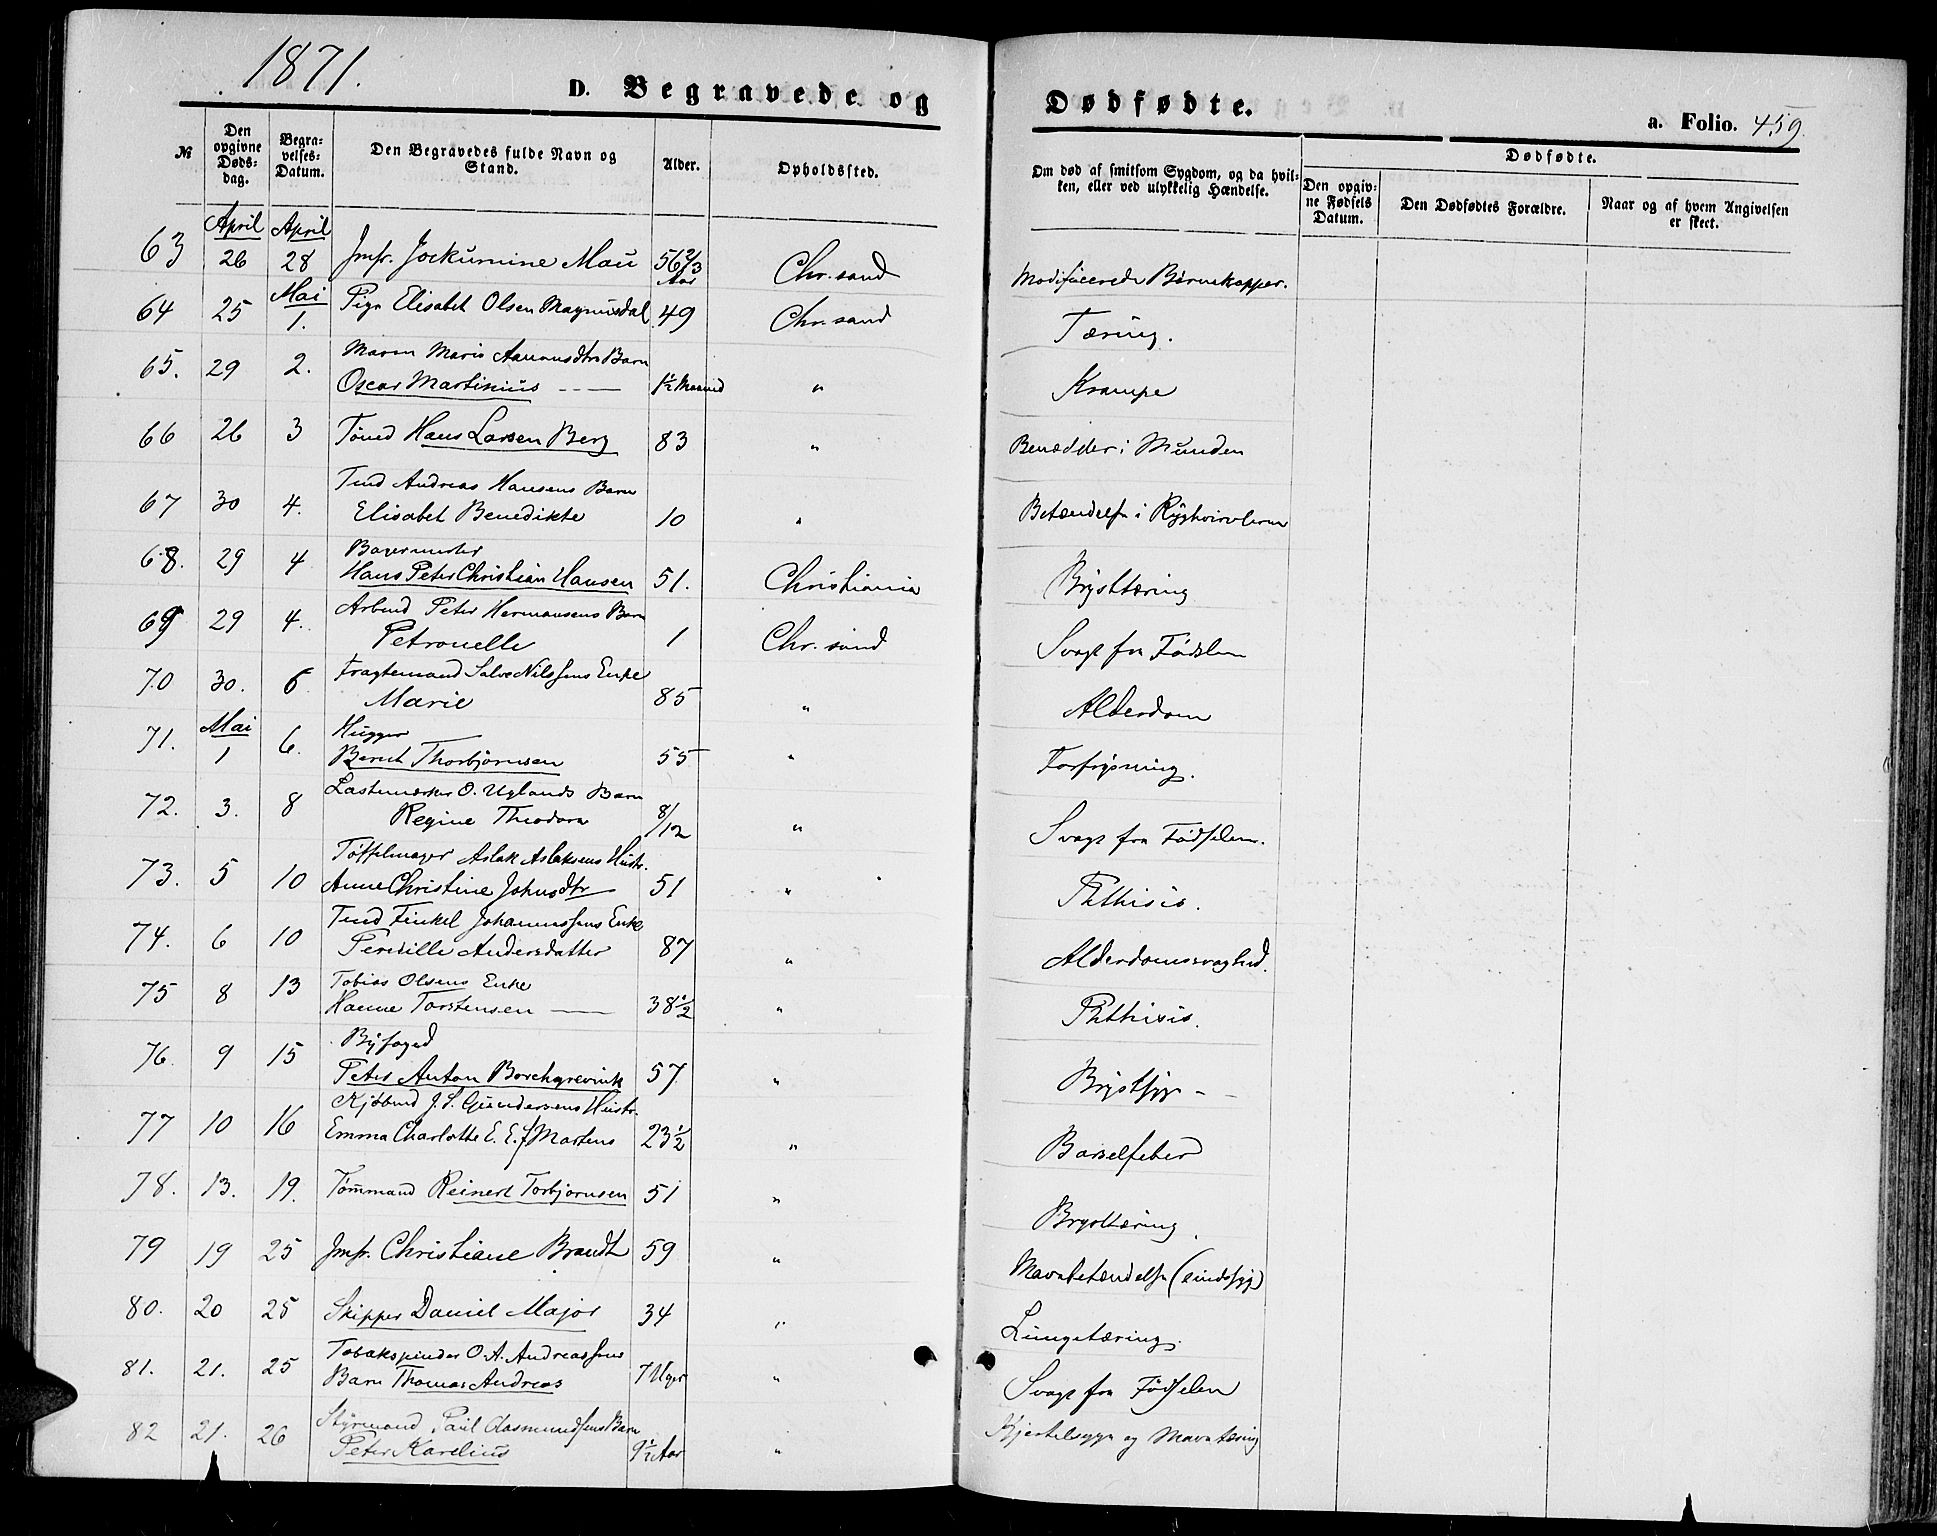 1871.
D. Begravede og Dødfødte.
a. Folio. 459.
№ | Den opgivne Døds-dag. | Begra-velses-Datum. | Den Begravedes fulde Navn og Stand. | Alder. | Opholdssted. | Om død af smitsom Sygdom, og da hvil-ken, eller ved ulykkelig Hændelse. | Dødfødte. | Den opgiv-ne Fødsels Datum. | Den Dødfødtes Forældre. | Naar og af hvem Angivelsen er skeet.
April April
63 26 28 Jmfr. Jockumine Mau 56 2/3 Aar Chr.sand Modificerede Børnekopper.
Mai
64 25 1. Pige Elisabet Olsen Magnusdal 49 Chr.sand Tæring.
65. 29 2. Maren Marie Aanensdtrs Barn
Oscar Martinius 1½ Maaned " Krampe
66 26 3 Tømd Hans Larsen Berg 83 " Benædder i Munden
67 30 4. Tmd Andreas Hansens Barn
Elisabet Benedikte 10 " Betændelse i Ryghvirvlerne
68. 29 4 Bagermester
Hans Peter Christian Hansen 51. Christiania Brysttæring
69 29 4. Arbmd Peter Hermansens Barn
Petronelle 1 Chr.sand Svagt fra Fødslen
70 30. 6 Fragtemand Salve Nilssens Enke
Marie 85 " Alderdom
Mai
71. 1 6. Hugger
Bernt Thorbjørnsen 55 " Forfrysning.
72. 3. 8 O. Uglands Barn
Regine Theodora 8/12 " Svagt fra Fødselen.
73. 5 10 Tøffelmager Aslak Aslaksens Hustr.
Anne Christine Johnsdtr 51 " Phthisis.
74. 6 10 Tmd Finkel Johannessens Enke
Pernille Andersdatter 87 " Alderdomssvaghed.
75 8 13 Tobias Olsens Enke
Hanne Torstensen 38½ " Phthisis.
76. 9 15 Byfoged
Peter Anton Borchgrevink 57 " Brystsyge
77 10 16 Kjøbmd J. S. Gundersens Hustr.
Emma Charlotte E. E. f Martens 23½ " Barselfeber
78. 13. 19. Tømmand Reinert Torbjørnsen 51 " Brysttæring.
79 19 25 Jmfr. Christiane Brandt 59 " Mavebetændelse (sindssyg)
80. 20 25 Skipper Daniel Major 34 " Lungetæring.
81. 21. 25 Tobakspinder O. A. Andreassens
Barn Thomas Andreas 7 Uger " Svagt fra Fødselen
82 21. 26 Styrmand Paul Aasmundsens Barn
Peter Karelius 9½ Aar " Kjertelsyge og Mavetæring